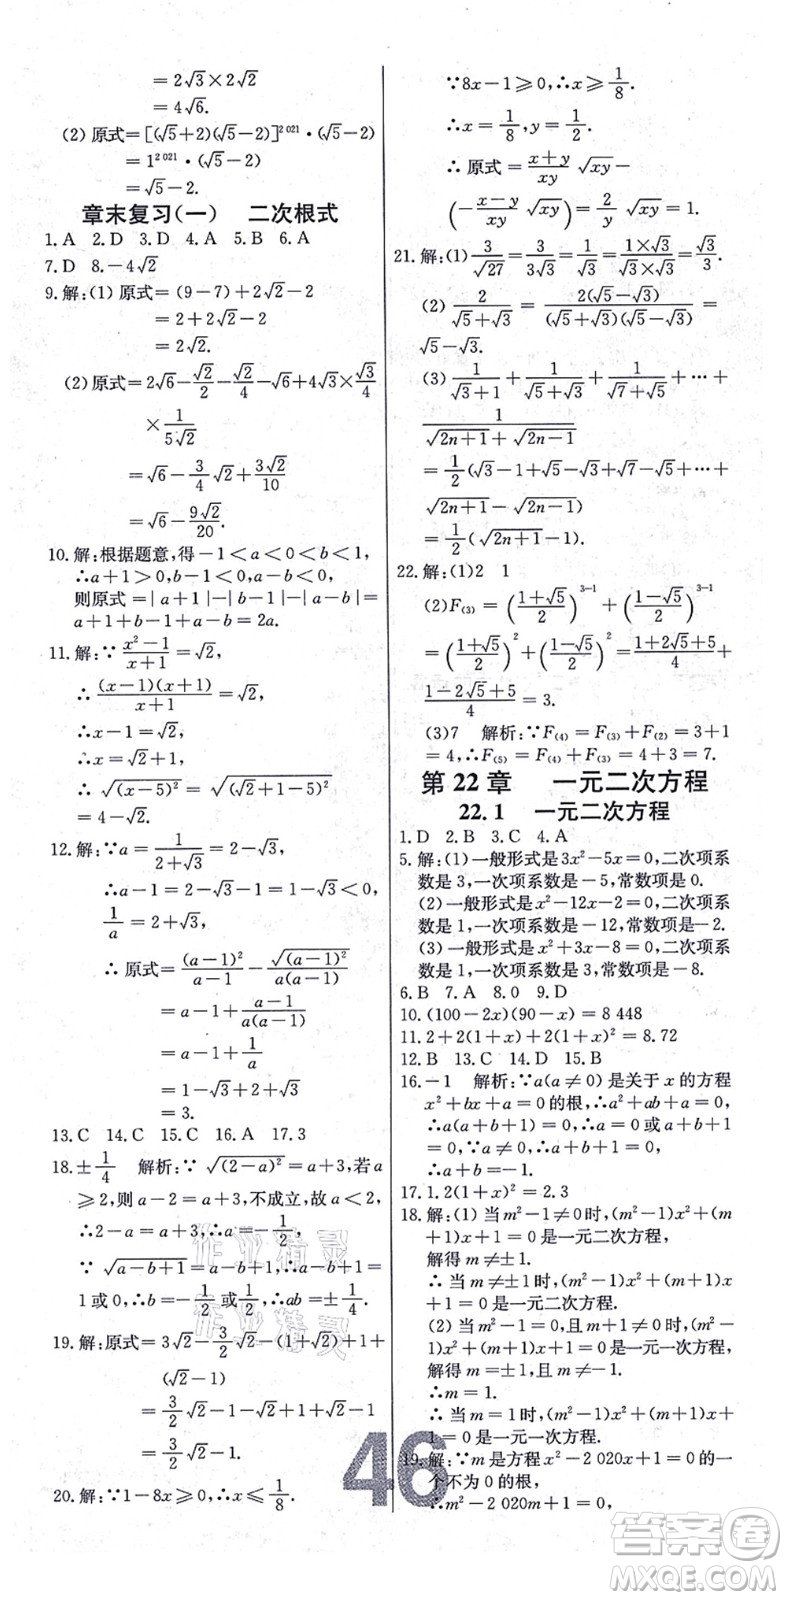 =2√3×2√2
=4√6.
(2)原式=[(√5+2)(√5-2)]²⁰²¹·(√5-2)
=1²⁰²¹·(√5-2)
=√5-2.
章末复习(一) 二次根式
1.A 2.D 3.D 4.A 5.B 6.A
7.D 8.-4√2
9.解:(1)原式=(9-7)+2√2-2
=2+2√2-2
=2√2.
(2)原式=2√6-√2/2-√2/4-√6+4√3×√3/4
×1/(5√2)
=√6-3/4√2+3√2/10
=√6-9√2/20.
10.解:根据题意,得-1<a<0<b<1,
∴a+1>0,b-1<0,a-b<0,
则原式=|a+1|-|b-1|+|a-b|=
a+1+b-1+a-b=2a.
11.解:∵(x²-1)/(x+1)=√2,
∴(x-1)(x+1)/(x+1)=√2,
∴x-1=√2,
∴x=√2+1,
∴√((x-5)²)=√((√2+1-5)²)
=4-√2.
12.解:∵a=1/(2+√3)=2-√3,
∴a-1=2-√3-1=1-√3<0,
1/a=2+√3,
∴原式=(a-1)²/(a-1)-√((a-1)²)/(a(a-1))
=a-1+(a-1)/(a(a-1))
=a-1+1/a
=1-√3+2+√3
=3.
13.C 14.C 15.C 16.A 17.3
18.±1/4 解析:∵√((2-a)²)=a+3,若a
≥2,则a-2=a+3,不成立,故a<2,
∴2-a=a+3,∴a=-1/2,
∵√(a-b+1)=a-b+1,∴a-b+1=
1或0,∴b=-1/2或1/2,∴ab=±1/4.
19.解:原式=3√2-3/2√2-(1+√2)+1+
(√2-1)
=3/2√2-1-√2+1+√2-1
=3/2√2-1.
20.解:∵1-8x≥0,∴x≤1/8.
∵8x-1≥0,∴x≥1/8.
∴x=1/8,y=1/2.
∴原式=(x+y)/xy √xy-
(-(x-y)/xy √xy)=2/y √xy=1.
21.解:(1)3/√27=3/(3√3)=1/√3=(1×√3)/(√3×√3)=√3/3.
(2)2/(√5+√3)=2(√5-√3)/((√5+√3)(√5-√3))=
√5-√3.
(3)1/(√3+1)+1/(√5+√3)+1/(√7+√5)+⋯+
1/(√(2n+1)+√(2n-1))
=1/2(√3-1+√5-√3+√7-√5+⋯+
√(2n+1)-√(2n-1))
=1/2(√(2n+1)-1).
22.解:(1)2 1
(2)F₍₃₎=((1+√5)/2)³⁻¹+((1-√5)/2)³⁻¹
=((1+√5)/2)²+((1-√5)/2)²=(1+2√5+5)/4+
(1-2√5+5)/4=3.
(3)7 解析:∵F₍₄₎=F₍₃₎+F₍₂₎=3+1
=4,∴F₍₅₎=F₍₄₎+F₍₃₎=4+3=7.
第22章 一元二次方程
22.1 一元二次方程
1.D 2.B 3.C 4.A
5.解:(1)一般形式是3x²-5x=0,二次项系
数是3,一次项系数是-5,常数项是0.
(2)一般形式是x²-12x-2=0,二次项系
数是1,一次项系数是-12,常数项是-2.
(3)一般形式是x²+3x-8=0,二次项系
数是1,一次项系数是3,常数项是-8.
6.B 7.A 8.0 9.D
10.(100-2x)(90-x)=8 448
11.2+2(1+x)+2(1+x)²=8.72
12.B 13.C 14.D 15.B
16.-1 解析:∵a(a≠0)是关于x的方程
x²+bx+a=0的根,∴a²+ab+a=0,
∴a(a+b+1)=0,∴a=0或a+b+1=
0.∵a≠0,∴a+b+1=0,
∴a+b=-1.
17.1.2(1+x)²=2.3
18.解:(1)当m²-1≠0时,(m²-1)x²+(m
+1)x+1=0是一元二次方程,
解得m≠±1.
∴当m≠±1时,(m²-1)x²+(m+1)x
+1=0是一元二次方程.
(2)当m²-1=0,且m+1≠0时,(m²-
1)x²+(m+1)x+1=0是一元一次方程,
解得m=±1,且m≠-1,
∴m=1.
∴当m=1时,(m²-1)x²+(m+1)x+1
=0是一元一次方程.
19.解:∵m是方程x²-2 020x+1=0的一
个不为0的根,
∴m²-2 020m+1=0,
46
作业精灵
作业精灵
答案圈
MXQE.COM